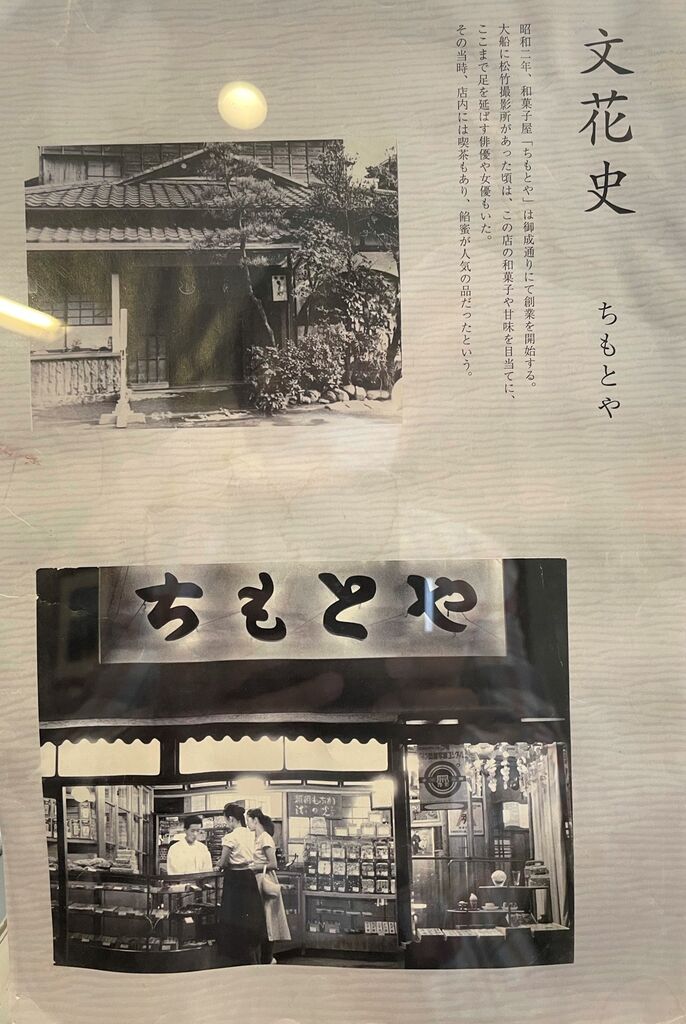 文花史 ちもとや
昭和二年、和菓子屋「ちもとや」は御成通りにて創業を開始する。
大船に松竹撮影所があった頃は、この店の和菓子や甘味を目当てに、
ここまで足を延ばす俳優や女優もいた。
その当時、店内には喫茶もあり、餡蜜が人気の品だったという。
ちもとや